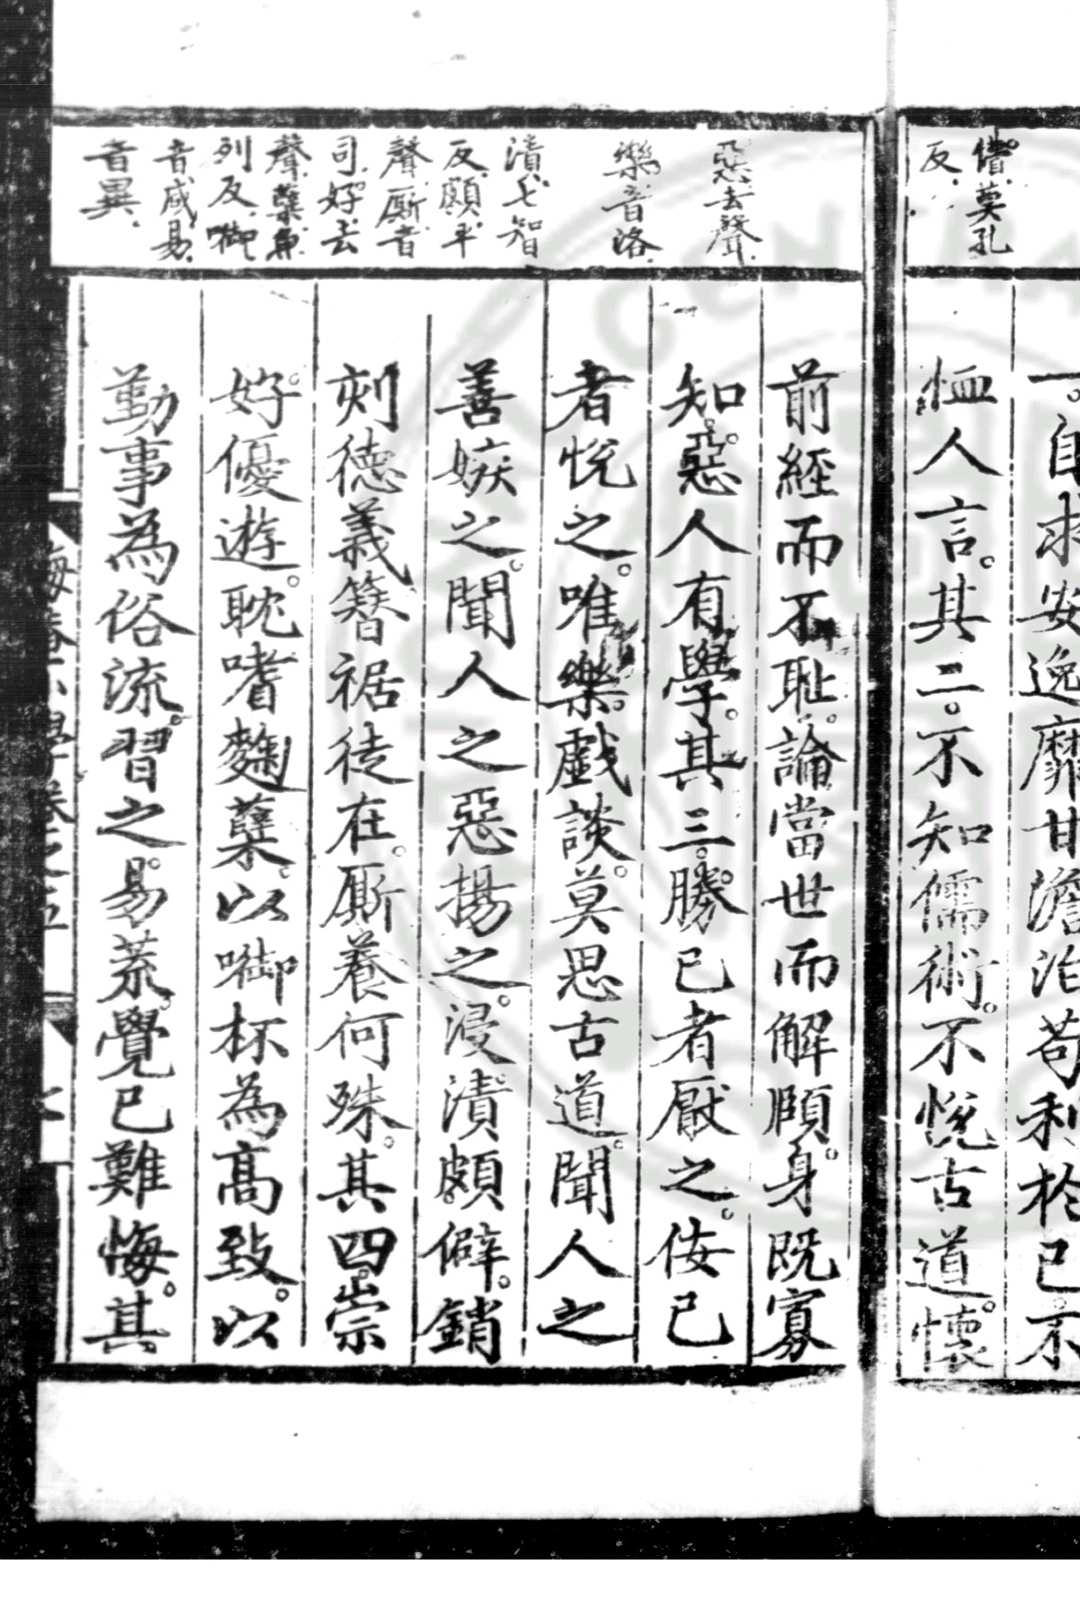 懵莫孔
反
一自求安逸靡甘澹泊苟利於己不
恤人言其二不知儒術不悅古道懷
惡去聲
樂音洛
漬七智
反頗平
聲厮音
司好去
聲蘖魚
列反啣
音咸易
音異
前經而不恥論當世而解頤身既寡
知惡人有學其三勝己者厭之佞己
者悅之唯樂戲談莫思古道聞人之
善嫉之聞人之惡揚之浸漬頗僻銷
刻德義簪裾徒在厮養何殊其四崇
好優遊耽嗜麴蘖以啣杯為高致以
勤事為俗流習之易荒覺已難悔其